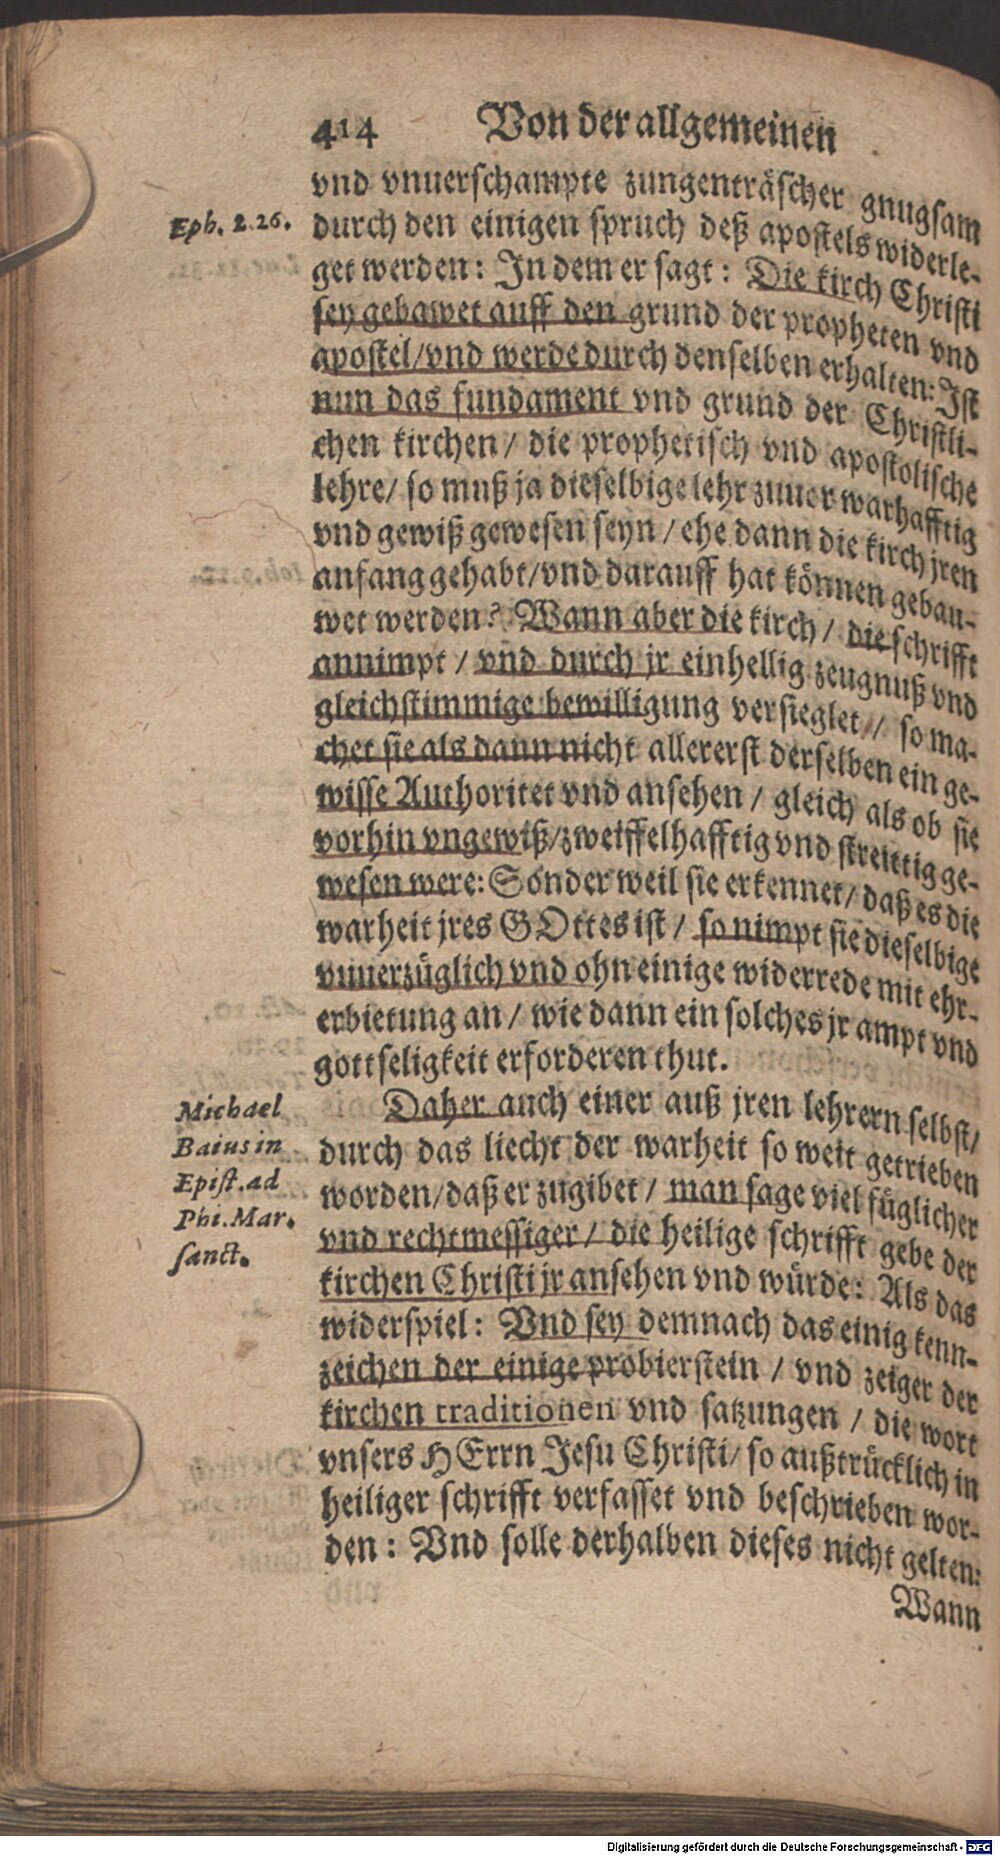 414 Von der allgemeinen
vnd vnuerschampte zungenträscher gnugsam
Eph. 2.26.
durch den einigen spruch deß apostels widerle-
get werden: In dem er sagt: Die kirch Christi
sey gebawet auff den grund der propheten vnd
apostel/vnd werde durch denselben erhalten: Ist
nun das fundament vnd grund der Christli-
chen kirchen / die prophetisch vnd apostolische
lehre/ so muß ja dieselbige lehr zuuor warhafftig
vnd gewiß gewesen seyn / ehe dann die kirch jren
anfang gehabt/vnd darauff hat können gebau-
wet werden? Wann aber die kirch / die schrifft
annimpt / vnd durch jr einhellig zeugnuß vnd
gleichstimmige bewilligung versieglet // so ma-
chet sie als dann nicht allererst derselben ein ge-
wisse Authoritet vnd ansehen / gleich als ob sie
vorhin vngewiß/zweiffelhafftig vnd streittig ge-
wesen were: Sonder weil sie erkennet/ daß es die
warheit jres GOttes ist / so nimpt sie dieselbige
vnuerzüglich vnd ohn einige widerrede mit ehr-
erbietung an / wie dann ein solches jr ampt vnd
gottseligkeit erforderen thut.
Michael
Baius in
Epist. ad
Phi. Mar.
sanct.
Daher auch einer auß jren lehrern selbst/
durch das liecht der warheit so weit getrieben
worden/daß er zugibet / man sage viel füglicher
vnd rechtmessiger / die heilige schrifft gebe der
kirchen Christi jr ansehen vnd würde: Als das
widerspiel: Vnd sey demnach das einig kenn-
zeichen der einige probierstein / vnd zeiger der
kirchen traditionen vnd satzungen / die wort
vnsers HErrn Jesu Christi/ so außtrücklich in
heiliger schrifft verfasset vnd beschrieben wor-
den: Vnd solle derhalben dieses nicht gelten:
Wann
Digitalisierung gefördert durch die Deutsche Forschungsgemeinschaft - DFG